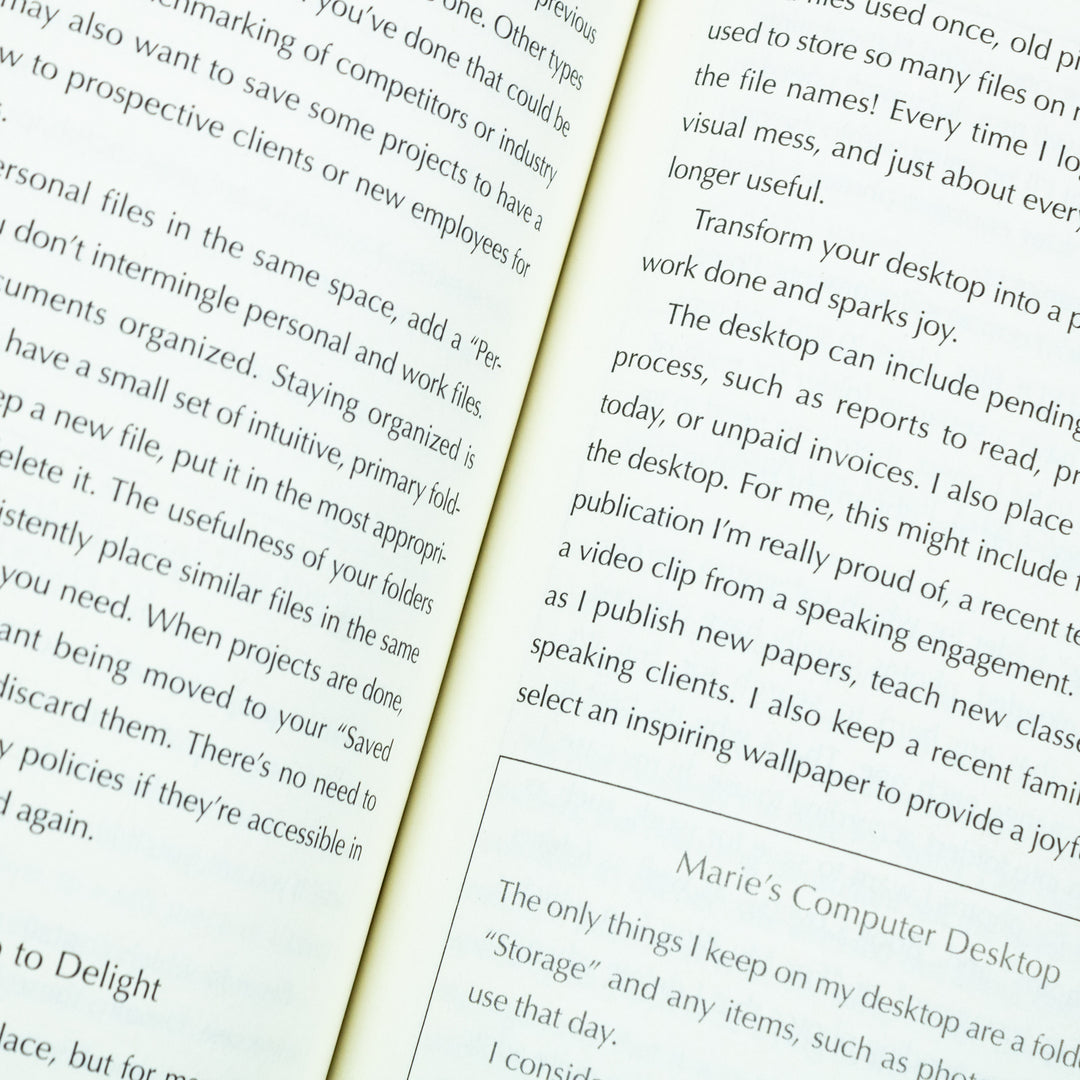 previous
one. Other types
you've done that could be
benchmarking of competitors or industry
may also want to save some projects to have a
to prospective clients or new employees for
personal files in the same space, add a “Per-
don't intermingle personal and work files.
organized. Staying organized is
have a small set of intuitive, primary fold-
a new file, put it in the most appropri-
delete it. The usefulness of your folders
place similar files in the same
you need. When projects are done,
being moved to your “Saved
discard them. There's no need to
policies if they're accessible in
again.
to Delight
but for
used once, old
used to store so many files on
the file names! Every time I
visual mess, and just about
longer useful.
Transform your desktop into a
work done and sparks joy.
The desktop can include pending
process, such as reports to read,
today, or unpaid invoices. I also place
the desktop. For me, this might include
publication I'm really proud of, a recent
a video clip from a speaking engagement.
as I publish new papers, teach new
speaking clients. I also keep a recent
select an inspiring wallpaper to provide a
Marie's Computer Desktop
The only things I keep on my desktop are a
“Storage” and any items, such as
use that day.
I